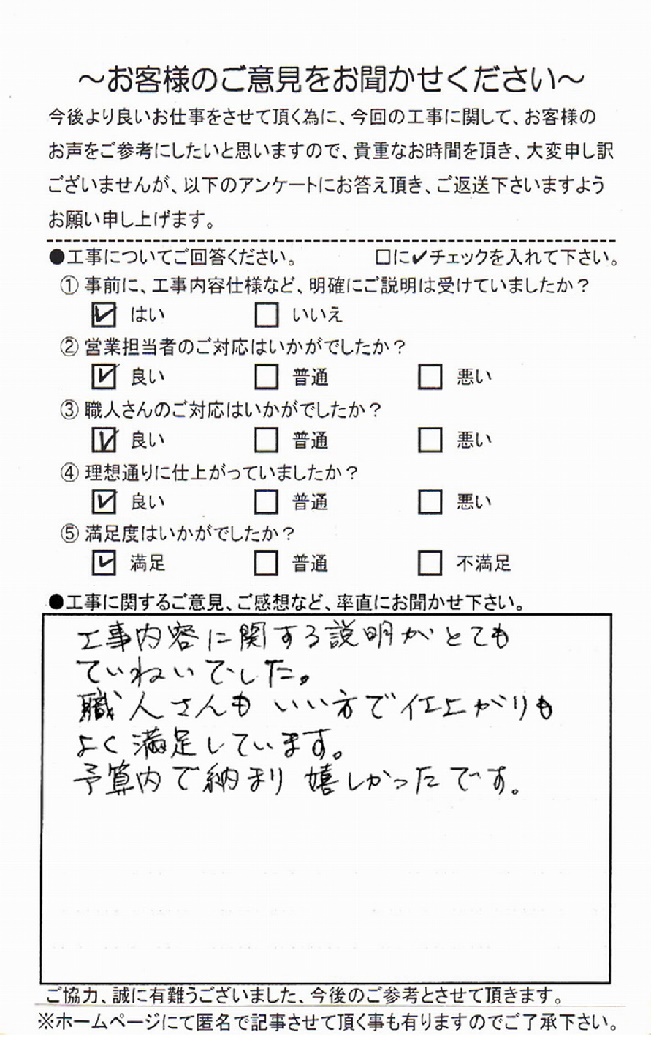 ～お客様のご意見をお聞かせください～
今後より良いお仕事をさせて頂く為に、今回の工事に関して、お客様の
お声をご参考にしたいと思いますので、貴重なお時間を頂き、大変申し訳
ございませんが、以下のアンケートにお答え頂き、ご返送下さいますよう
お願い申し上げます。
●工事についてご回答ください。 □に✔チェックを入れて下さい。
① 事前に、工事内容仕様など、明確にご説明は受けていましたか？
☑ はい □ いいえ
② 営業担当者のご対応はいかがでしたか？
☑ 良い □ 普通 □ 悪い
③ 職人さんのご対応はいかがでしたか？
☑ 良い □ 普通 □ 悪い
④ 理想通りに仕上がっていましたか？
☑ 良い □ 普通 □ 悪い
⑤ 満足度はいかがでしたか？
☑ 満足 □ 普通 □ 不満足
●工事に関するご意見、ご感想など、率直にお聞かせ下さい。
工事内容に関する説明がとても
ていねいでした。
職人さんもいい方で仕上がりも
よく満足しています。
予算内で納まり嬉しかったです。
ご協力、誠に有難うございました、今後のご参考とさせて頂きます。
※ホームページにて匿名で記事させて頂く事も有りますのでご了承下さい。